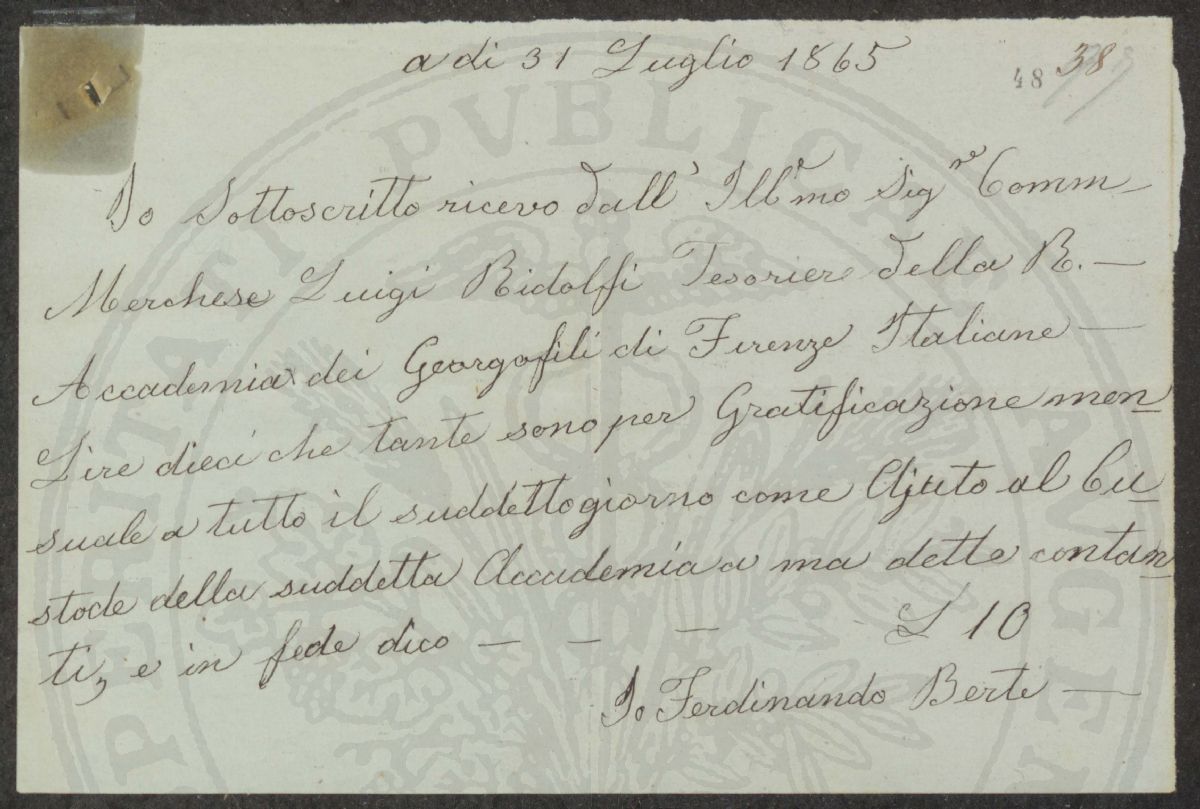 a di 31 Luglio 1865
48 38
Io Sottoscritto ricevo dall' Ill.mo Sig.re Comm—
Merchese Luigi Ridolfi Tesoriere della R. —
Accademia dei Georgofili di Firenze Italiane —
Lire dieci che tante sono per Gratificazione men
suale a tutto il suddetto giorno come Ajuto al Cu
stode della suddetta Accademia a ma dette contan
ti, e in fede dico — — — L 10
Io Ferdinando Berti —
PROSPERITATI PVBLICAE AVGENDAE